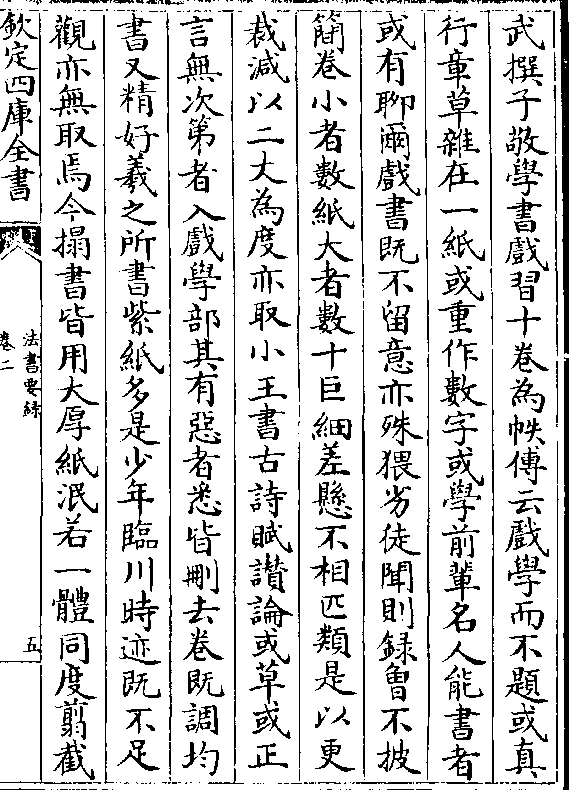 武撰子敬學書戲習十卷為帙傳云戲學而不題或真
行章草雜在一紙或重作數字或學前輩名人能書者
或有聊爾戲書既不留意亦殊猥劣徒聞則録曾不披
簡卷小者數紙大者數十巨細差懸不相匹類是以更
裁減以二丈為度亦取小王書古詩賦讃論或草或正
言無次第者入戲學部其有惡者悉皆刪去卷既調均
書又精好羲之所書紫紙多是少年臨川時迹既不足
觀亦無取焉今搨書皆用大厚紙泯若一體同度翦截
欽定四庫全書
法書要録
卷二
五